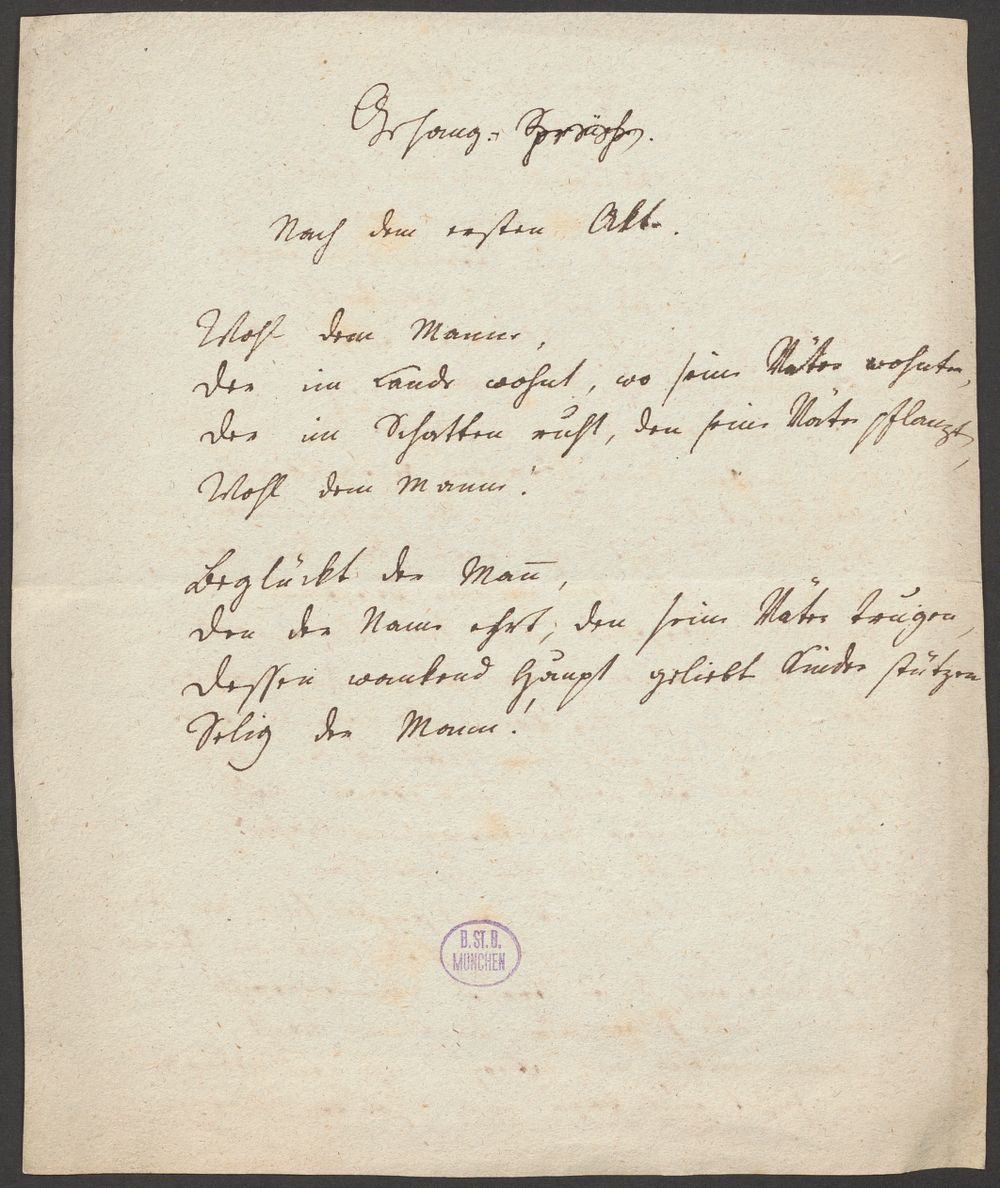 Gesang-Sprüche.
Nach dem ersten Akt.
Wohl dem Manne,
Der im Lande wohnt, wo seine Väter wohnten,
Der im Schatten ruht, den seine Väter pflanzten,
Wohl dem Manne!
Beglückt der Mañ,
Den der Name ehrt, den seine Väter trugen,
Dessen wankend Haupt geliebte Kinder stützen
Selig der Mann!
B. ST. B.
MÜNCHEN